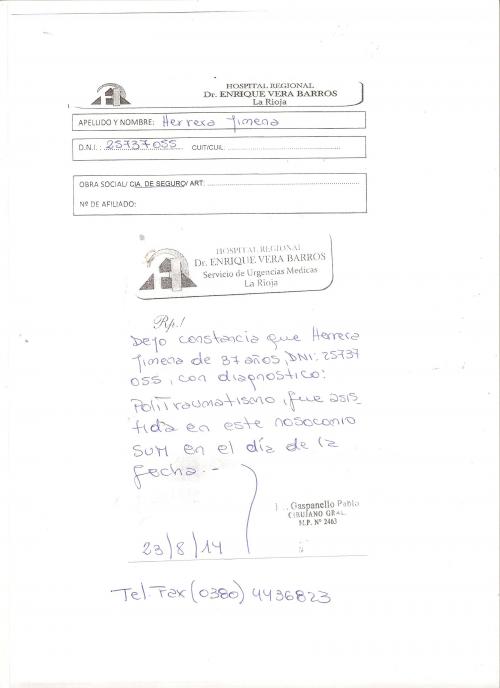 HOSPITAL REGIONAL
Dr. ENRIQUE VERA BARROS
La Rioja
APELLIDO Y NOMBRE: Herrera Jimena
D.N.I.: 25737055 CUIT/CUIL:
OBRA SOCIAL/ CIA. DE SEGURO/ ART:
Nº DE AFILIADO:
HOSPITAL REGIONAL
Dr. ENRIQUE VERA BARROS
Servicio de Urgencias Medicas
La Rioja
Rp./
Dejo constancia que Herrera
Jimena de 37 años, DNI: 25737
055, con diagnostico:
Politraumatismo, fue asis
tida en este nosocomio
SUM en el día de la
fecha.-
Gaspanello Pablo
CIRUJANO GRAL.
M.P. Nº 2463
23/8/14
Tel-Fax (0380) 4436823